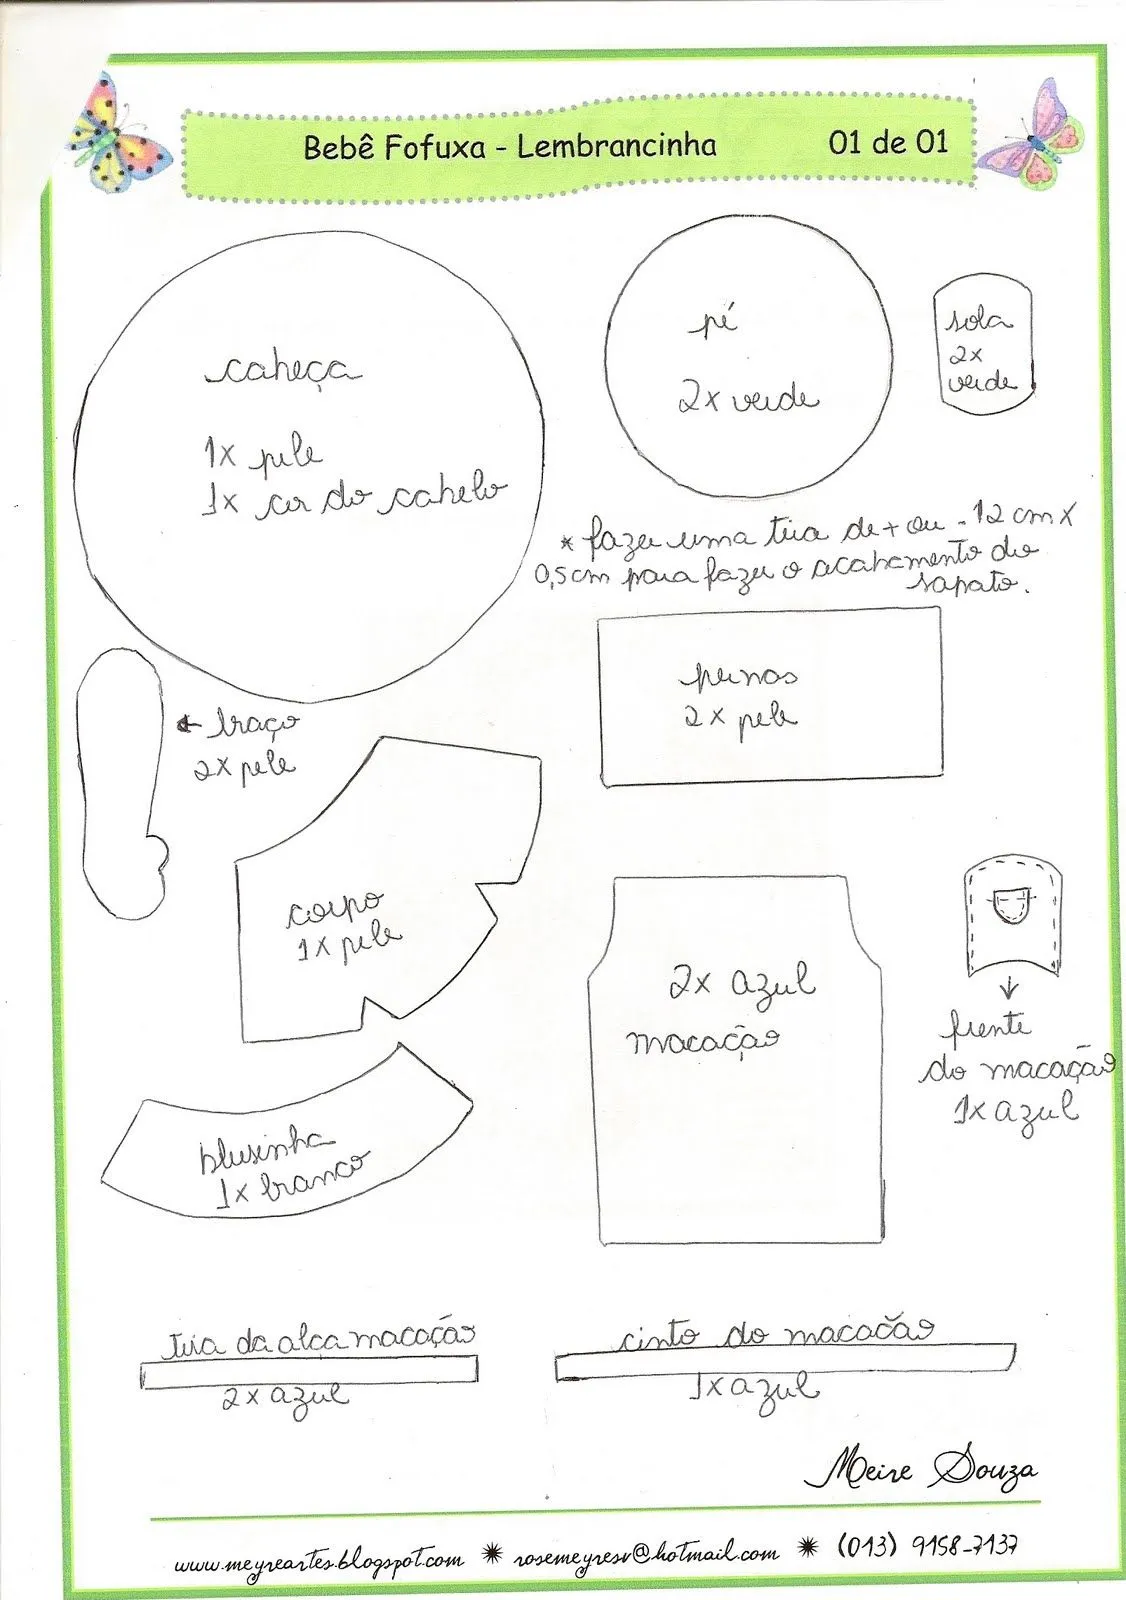 Bebê Fofuxa - Lembrancinha 01 de 01
cabeça
1x pele
1x cor do cabelo
pé
2x verde
sola
2x
verde
* fazer uma tira de + ou - 12 cm X
0,5cm para fazer o acabamento do
sapato.
braço
2x pele
pernas
2x pele
corpo
1x pele
2x azul
macacão
frente
do macacão
1x azul
blusinha
1x branco
tira da alça macacão
2x azul
cinto do macacão
1x azul
Meire Souza
www.meyreartes.blogspot.com * rosemeyresv@hotmail.com * (013) 9158-7137